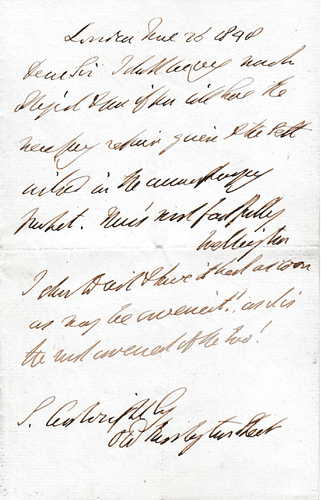 London June 26 1840
Dear Sir I shall be very much
obliged to you if you will have the
necessary repair given to the Sett
inclosed in the accompanying
Packet. Yours most faithfully
Wellington
I should wish to have it back as soon
as may be convenient; as it is
the most convenient of the two!
S. Cartwright Esq
Old Burlington Street